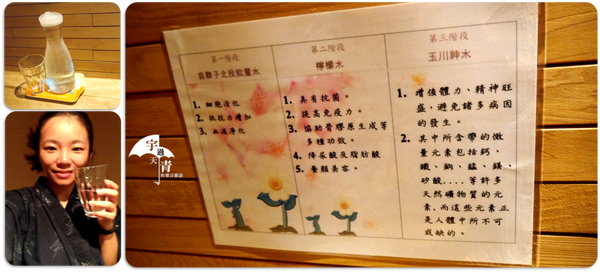 第一階段
負離子北投能量水
1. 細胞活化
2. 抵抗力增加
3. 血液淨化
第二階段
檸檬水
1. 具有抗菌。
2. 提高免疫力。
3. 協助骨膠原生成等
多種功效。
4. 降尿酸及脂肪酸
5. 養顏美容。
第三階段
玉川神水
1. 增強體力、精神旺
盛，避免諸多病因
的發生。
2. 其中所含帶的微
量元素包括鈣、
鐵、鈉、錳、鎂、
矽酸....等許多
天然礦物質的元
素，而這些元素正
是人體中所不可
或缺的。
宇過天青